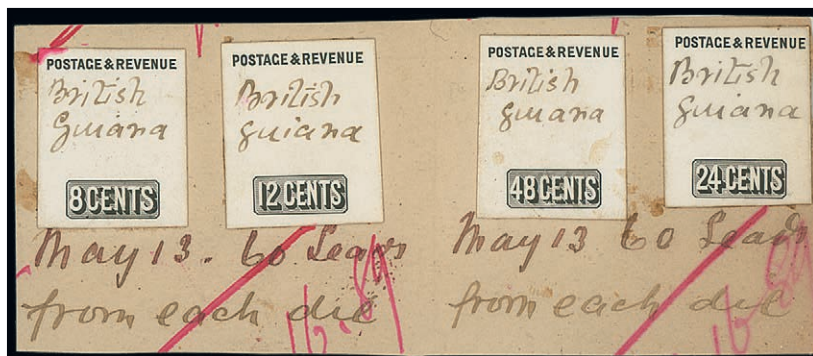 POSTAGE & REVENUE
British
Guiana
8 CENTS
POSTAGE & REVENUE
British
Guiana
12 CENTS
POSTAGE & REVENUE
British
Guiana
48 CENTS
POSTAGE & REVENUE
British
Guiana
24 CENTS
May 13. 60 Leads
from each die
16.89
May 13 60 Leads
from each die
16.89